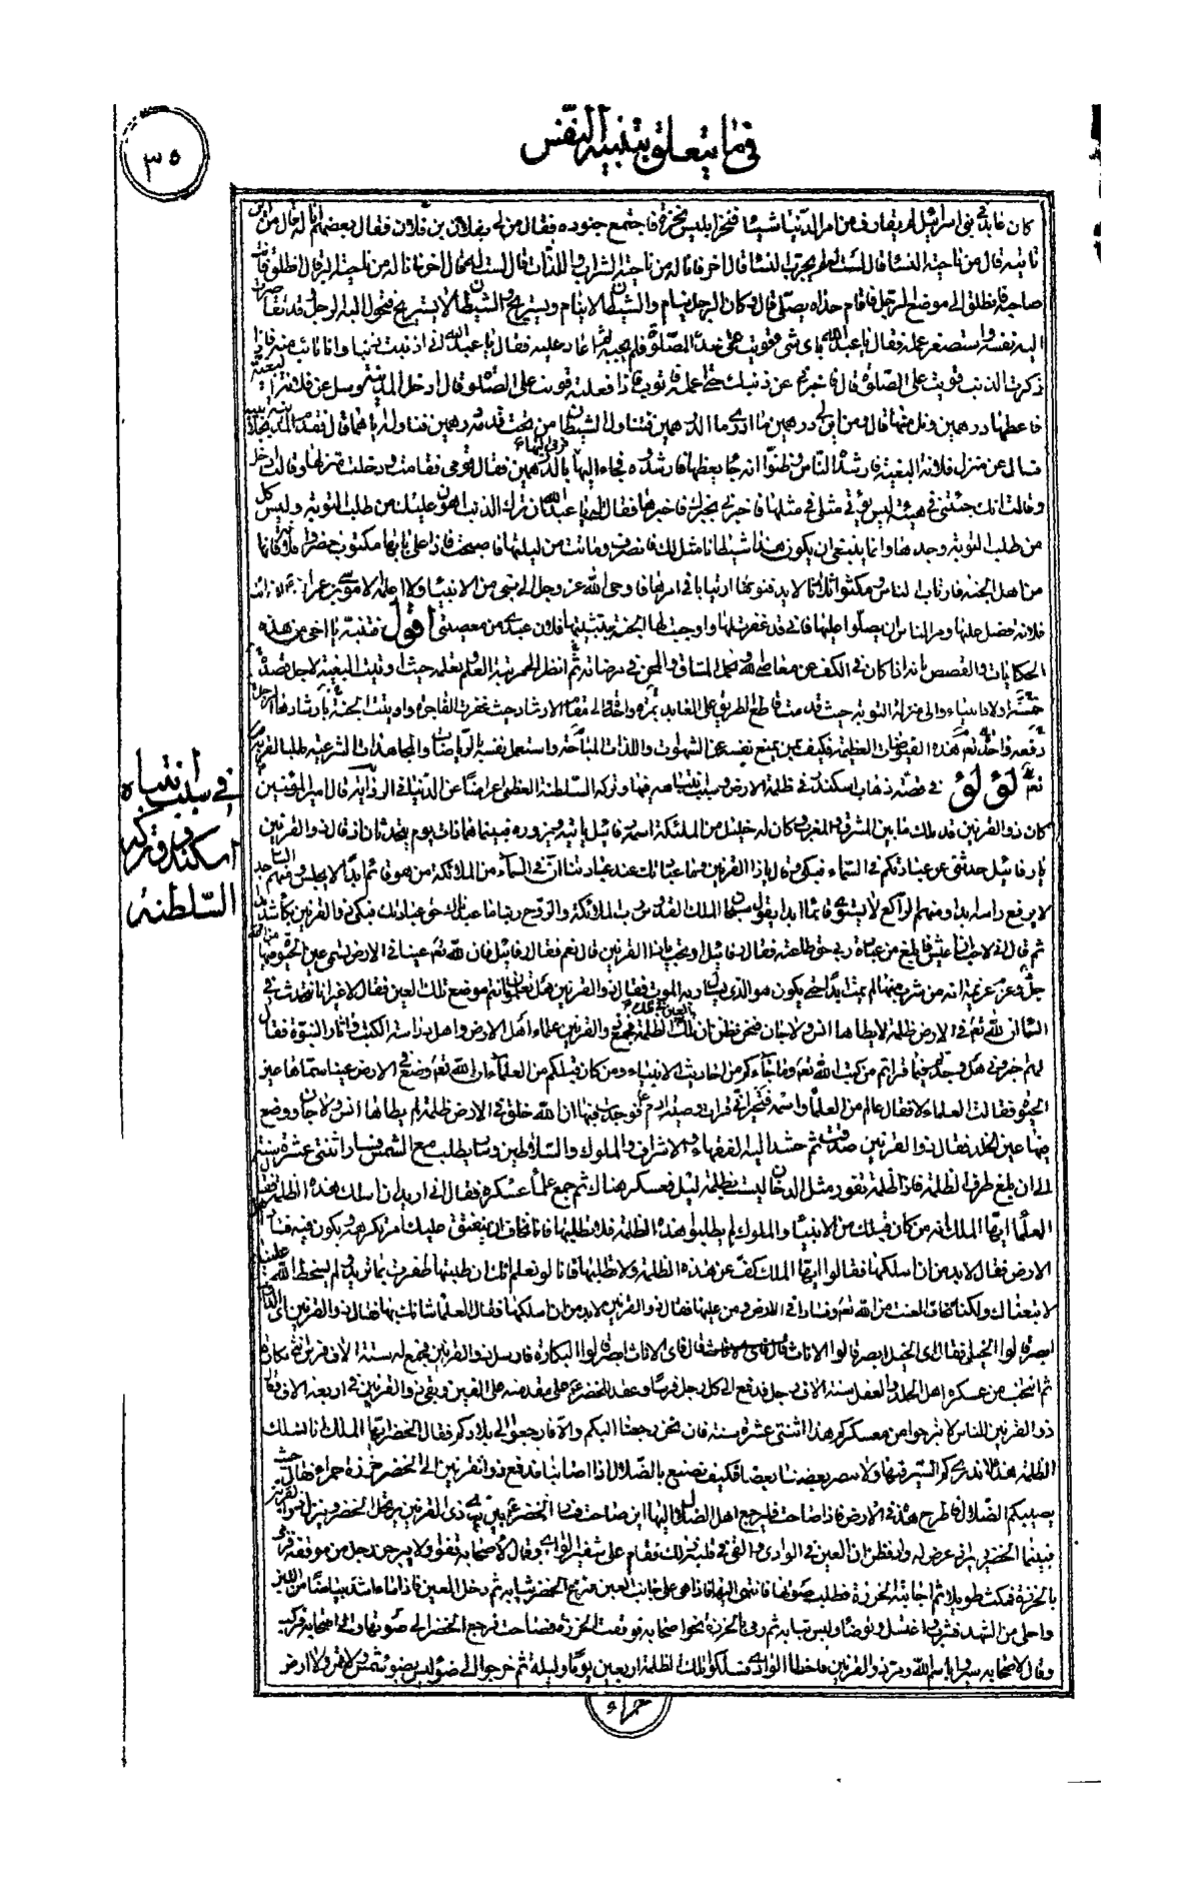 فيما يتعلق بتنبيه النفس
٣٥
كان عابد في بني اسرائيل لم يقارف من امر الدنيا شيئا فنخر ابليس نخرة فاجتمع جنوده فقال من لي بفلان بن فلان فقال بعضهم انا له قال من اين
تاتيه قال من ناحية النساء قال لست له لم يجرب النساء قال اخر فانا له من ناحية الشراب واللذات قال لست له قال اخر فانا له من ناحية البر قال انطلق فانت
صاحبه فانطلق الى موضع الرجل فاقام حذاه يصلي قال وكان الرجل ينام والشيطان لا ينام ويستريح والشيطان لا يستريح فتحول اليه الرجل وقد تقاصرت
اليه نفسه واستصغر عمله فقال يا عبد الله باي شيء قويت على هذه الصلوة فلم يجبه ثم اعاد عليه فقال يا عبد الله اني اذنبت ذنبا وانا تائب منه فاذا
ذكرت الذنب قويت على الصلوة قال فاخبرني عن ذنبك حتى اعمله فاتوب فاذا فعلته قويت على الصلوة قال ادخل المدينة وسل عن فلانة البغية
فاعطها درهمين ونل منها قال ومن اين لي درهمين ما ادري ما الدرهمين فتناول الشيطان من تحت قدمه درهمين فناوله اياهما فقام فدخل المدينة بجلابيبه
فسال عن منزل فلانة البغية فارشده الناس وظنوا انه جاء يعظها فارشدوه فجاء اليها فرمى اليها بالدرهمين فقال قومي فقامت ودخلت منزلها وقالت ادخل
وقالت انك جئتني في هيئة ليس يؤتى مثلي في مثلها فاخبرني بخبرك فاخبرها فقالت له يا عبد الله ان ترك الذنب اهون عليك من طلب التوبة وليس كل
من طلب التوبة وجدها وانما ينبغي ان يكون هذا شيطانا مثل لك فانصرف وماتت من ليلتها فاصبحت فاذا على بابها مكتوب احضروا فلانة فانها
من اهل الجنة فارتاب الناس ومكثوا ثلاثا لا يدفنونها ارتيابا في امرها فاوحى الله عز وجل الى نبي من الانبياء ولا اعلمه الا موسى بن عمران ان ائت
فلانة فصل عليها ومر الناس ان يصلوا عليها فاني قد غفرت لها واوجبت لها الجنة بتثبيطها فلان عبدي من معصيتي اقول فتنبه يا اخي من هذه
الحكايات والقصص بانه اذا كان في الكف عن معاصي الله وتحمل المشاق والمحن في مرضاته ثم انظر الى مرتبة العلم وتعلمه حيث اوتيت البغية لاجل قصد
رفعه واحدة نعم هذه الفيوضات العظيمة فكيف بمن يمنع نفسه عن الشهوات واللذات المباحة واستعمل نفسه الرياضات والمجاهدات الشرعية طلبا لقربه
لؤلؤ في قصة ذهاب اسكندر في ظلمة الارض وسبب تنبهه فيها وتركه السلطنة العظمى عراضا عن الدنيا في الرواية قال امير المؤمنين
كان ذو القرنين قد ملك ما بين المشرق والمغرب وكان له خليل من الملئكة اسمه رفائيل ياتيه ويزوره فبينما هما ذات يوم يتحدثان اذ قال ذو القرنين
يا رفائيل حدثني عن عبادتكم في السماء فبكى وقال يا ذا القرنين وما عبادتك عند عبادتنا ان في السماء من الملائكة من هو قائم ابدا لا يجلس ومنهم الساجد
لا يرفع راسه ابدا ومنهم الراكع لا يستوي قائما ابدا يقول سبحان الملك القدوس رب الملائكة والروح ربنا ما عبدناك حق عبادتك فبكى ذو القرنين بكاء شديدا
ثم قال اني لاحب ان اعيش فابلغ من عبادة ربي حق طاعته فقال رفائيل اوتحب يا ذا القرنين قال نعم فقال رفائيل فان لله تعم عينا في الارض تسمى عين الحيوة فيها
جل وعز عزيمة انه من شرب منها لم يمت ابدا حتى يكون هو الذي يسال ربه الموت فقال ذو القرنين هل تعلمون انتم موضع تلك العين فقال لا غير انا نتحدث في
السماء ان لله تعم في الارض ظلمة لا يطاها انس ولا جان فنحن نظن ان تلك العين في تلك الظلمة فجمع ذو القرنين علماء اهل الارض واهل دراسة الكتب واثار النبوة فقال
لهم اخبروني هل وجدتم فيما قراتم من كتب الله تعم وما جاءكم من احاديث الانبياء ومن كان قبلكم من العلماء ان الله تعم وضع في الارض عينا سماها عين
الحيوة فقالت العلماء لا فقال عالم من العلماء واسمه فتحيز اني قرات وصية ادم ع فوجدت فيها ان الله خلق في الارض ظلمة لم يطاها انس ولا جان ووضع
فيها عين الخلد فقال ذو القرنين صدقت ثم حشد اليه الفقهاء والاشراف والملوك والسلاطين وسار يطلب مطلع الشمس فسار اثنتى عشرة سنة
الى ان بلغ طرف الظلمة فاذا ظلمة تفور مثل الدخان ليست بظلمة ليل فعسكر هناك ثم جمع علماء عسكره فقال اني اريد ان اسلك هذه الظلمة فقال
العلماء ايها الملك انه من كان قبلك من الانبياء والملوك لم يطلبوا هذه الظلمة فلا تطلبها فانا نخاف ان ينفتق عليك امر تكرهه ويكون فيه فساد
الارض فقال لا بد من ان اسلكها فقالوا ايها الملك كف عن هذه الظلمة ولا تطلبها فانا لو نعلم انك ان طلبتها ظفرت بما تريد ولم يسخط الله علينا
لاتبعناك ولكنا نخاف العنت من الله تعم وفسادا في الارض ومن عليها فقال ذو القرنين لا بد من ان اسلكها فقال العلماء شانك بها فقال ذو القرنين اي الدواب
ابصر قالوا الخيل فقال اي الخيل ابصر قالوا الاناث قال فاي الاناث ابصر قالوا البكارة فارسل ذو القرنين فجمع له ستة الاف فرس انثى بكارة
ثم انتخب من عسكره اهل الجلد والعقل ستة الاف رجل فدفع الى كل رجل فرسا وعقد للخضر ع على مقدمته على الفين وبقى ذو القرنين في اربعة الاف وقال
ذو القرنين للناس لا تبرحوا من معسكركم هذا اثنتى عشرة سنة فان نحن رجعنا اليكم والا فارجعوا الى بلادكم فقال الخضر ايها الملك انا نسلك
الظلمة هذه لا ندري كم السير فيها ولا يبصر بعضنا بعضا فكيف نصنع بالضلال اذا اصابنا فدفع ذو القرنين الى الخضر خرزة حمراء فقال حيث
يصيبكم الضلال فاطرح هذه في الارض فاذا صاحت فليرجع اهل الضلال اليها اين صاحت فسار الخضر ع بين يدي ذي القرنين يرتحل الخضر وينزل ذو القرنين
فبينما الخضر يسير اذ عرض له واد فظن ان العين في الوادي والقي في قلبه ذلك فقام على شفير الوادي وقال لاصحابه قفوا ولا يبرحن رجل من موقفه فرمى
بالخرزة فمكث طويلا ثم اجابته الخرزة فطلب صوتها فانتهى اليها فاذا هي على جانب العين فنزع الخضر ثيابه ثم دخل العين فاذا ماء اشد بياضا من اللبن
واحلى من الشهد فشرب واغتسل وتوضا ولبس ثيابه ثم رمى بالخرزة نحو اصحابه فوقعت الخرزة فصاحت فرجع الخضر الى صوتها والى اصحابه فركب
وقال لاصحابه سيروا باسم الله ومر ذو القرنين فاخطا الوادي فسلكوا تلك الظلمة اربعين يوما وليلة ثم خرجوا الى ضوء ليس بضوء شمس ولا قمر ولا ارض
حمراء
في سبب انتباه
اسكندر وتركه
السلطنة